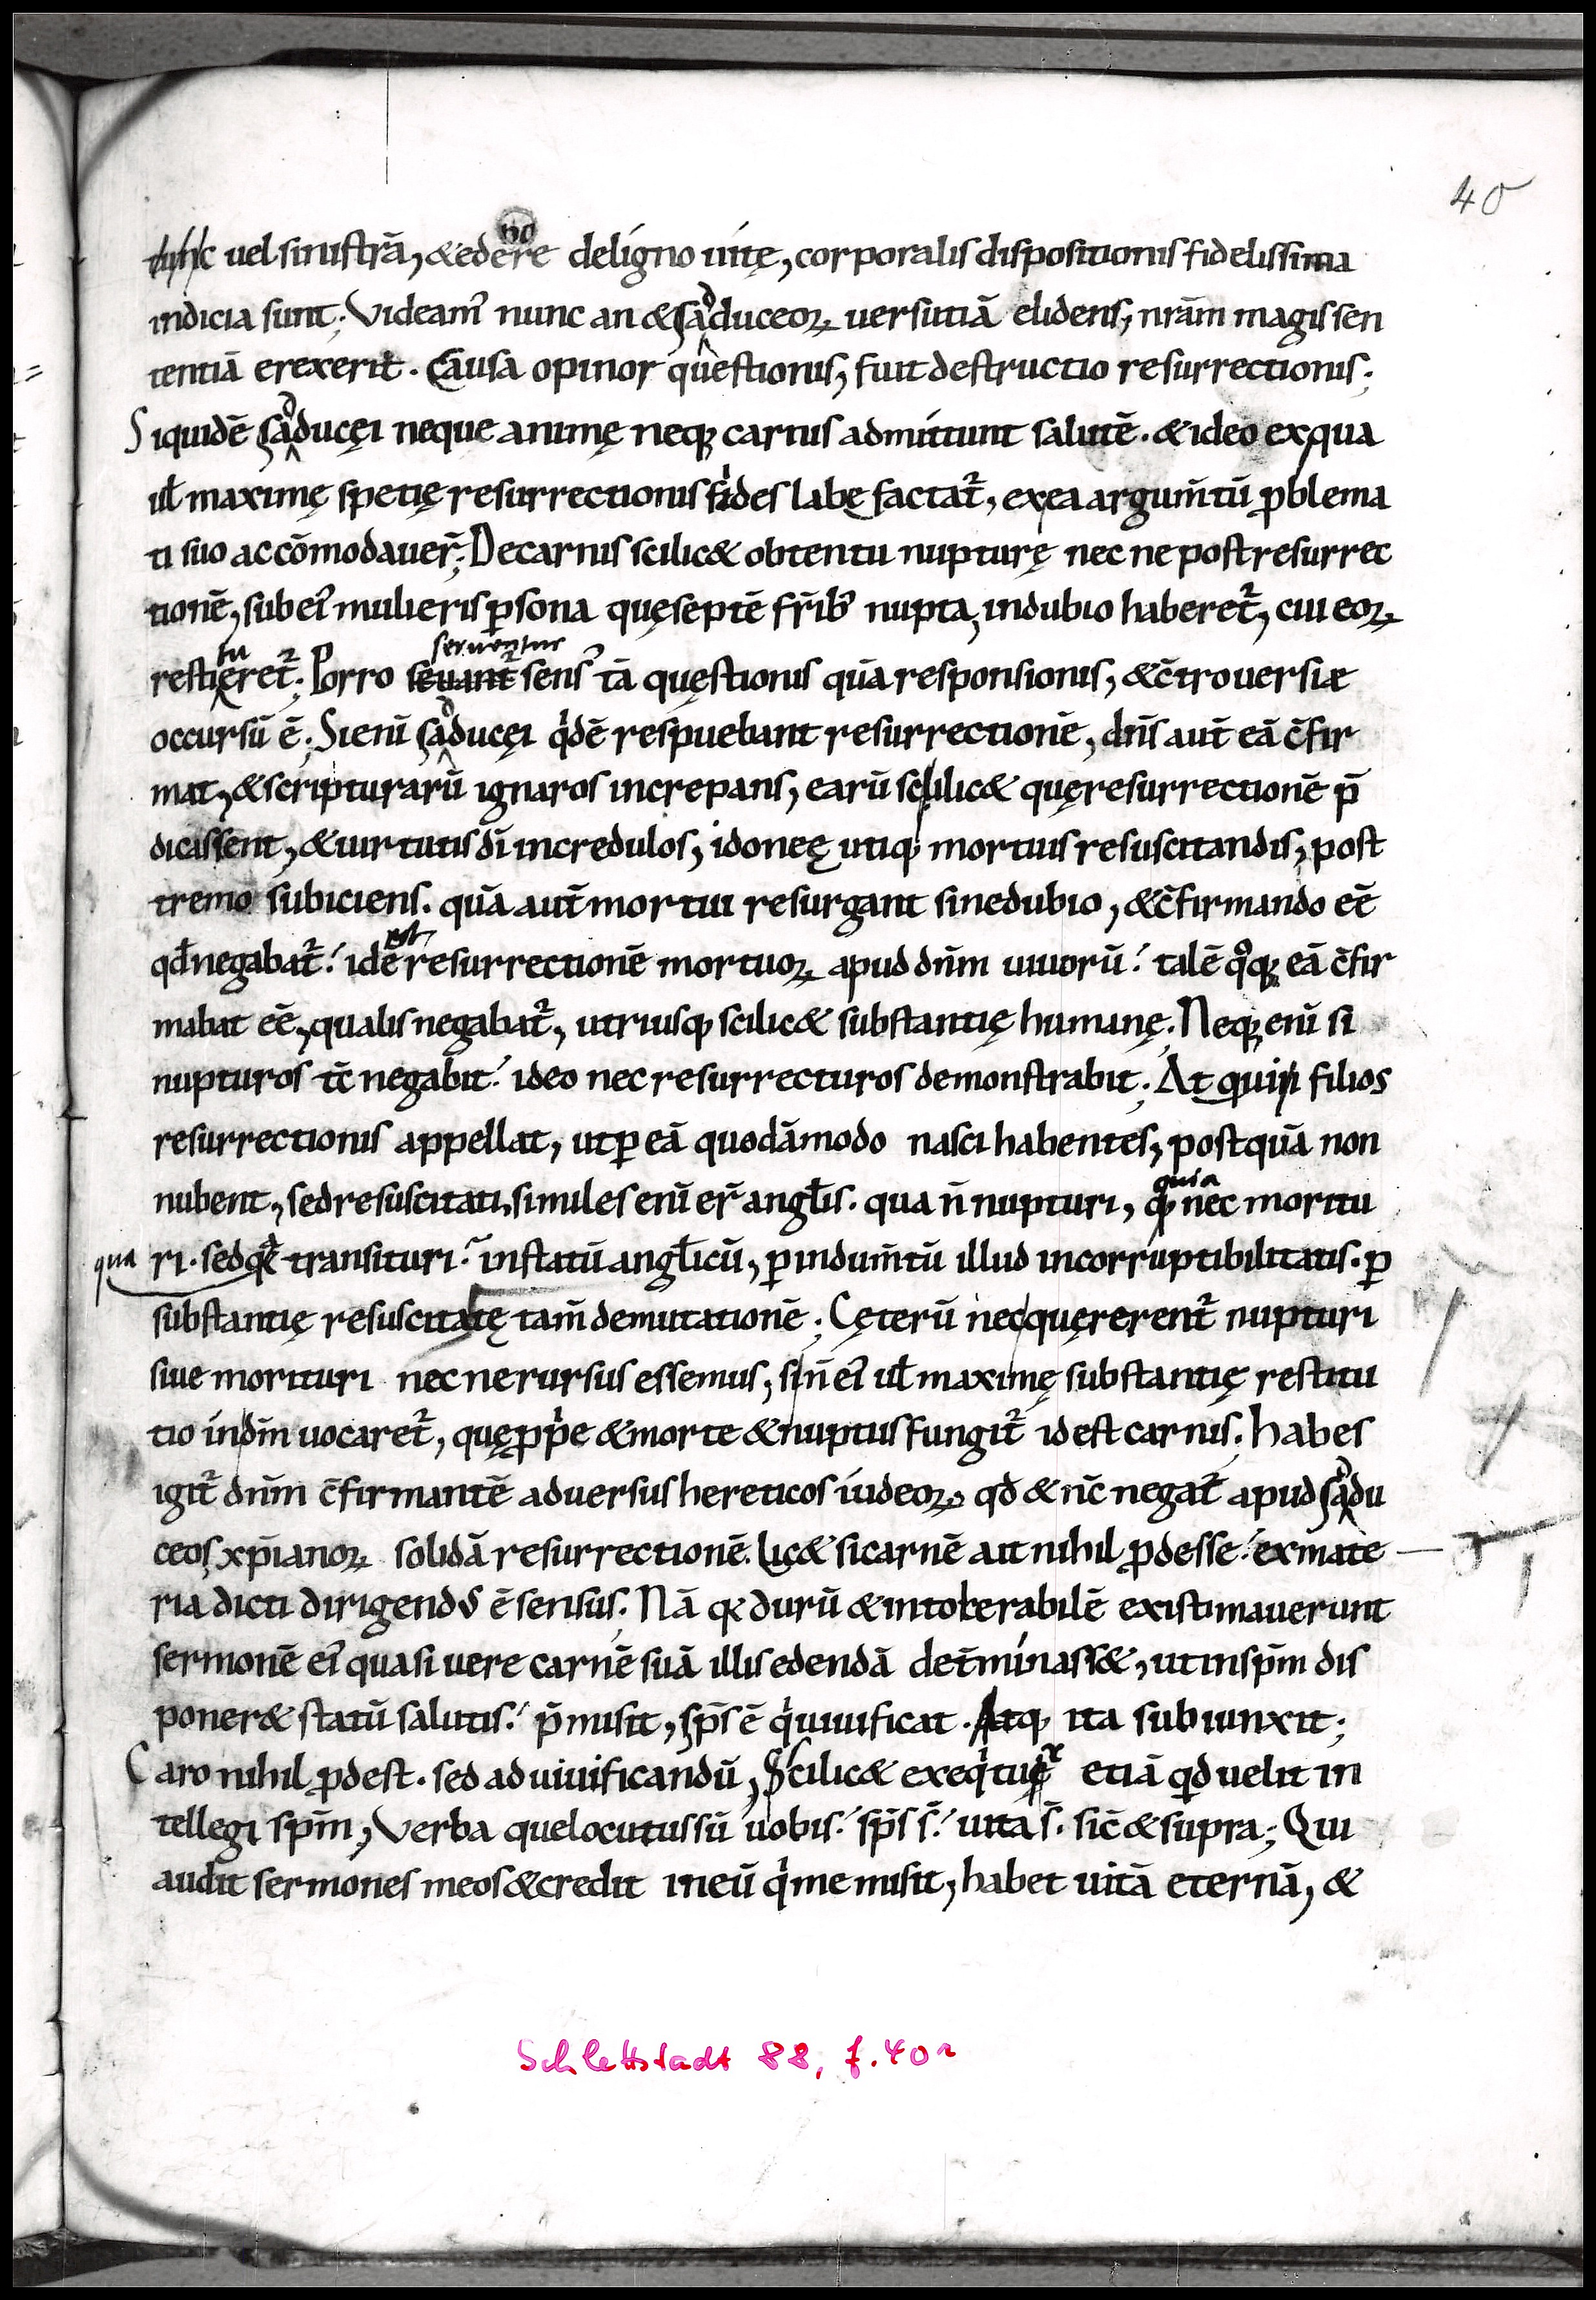 40
uel sinistrā, & edere de ligno uitę, corporalis dispositionis fidelissima
indicia sunt; Videam᾿ nunc an & saduceoꝝ uersutiā elidens, nr̄am magis sen
tentiā erexerit. Causa opinor questionis, fuit destructio resurrectionis;
Siquidē saducęi neque animę neq; carnis admittunt salutē. & ideo ex qua
ul̄ maximę spetię resurrectionis fides labefactat᾿, ex ea argum̄tū ꝓblema
ti suo accōmodauer̄; De carnis scilic& obtentu nupturę nec ne post resurrec
tionē, sub ei᾿ mulieris ꝑsona quę septē fr̄ib᾿ nupta, in dubio haberet᾿, cui eoꝝ
tu seruentur
restieret᾿; Porro seuant᾿ sens᾿ tā quęstionis quā responsionis, & c̄trouersiæ
occursū ē; Si enī saducęi q̇dē respuebant resurrectionē, dn̄s aut̄ eā c̄fir
mat, & scripturarū ignaros increpans, earū scilic& quę resurrectionē p̄
dicassent, & uirtutis dī incredulos, idoneę utiq; mortuis resuscitandis, post
tremo subiciens. quā aut̄ mortui resurgant sine dubio, & c̄firmando eē
est
qđ negabat᾿; id ē resurrectionē mortuoꝝ apud dn̄m uiuorū; talē qͦq; eā c̄fir
mabat eē, qualis negabat᾿, utriusq; scilic& substantię humanę. Neq; enī si
nupturos tc̄ negabit; ideo nec resurrecturos demonstrabit; At qui filios
resurrectionis appellat, ut ꝑ eā quodāmodo nasci habentes, postquā non
nubent, sed resuscitati, similes enī er̄ angl̄is. qua n̄ nupturi, quia nec moritu
qua ri. sed transituri; in statū angl̄icū, ꝑ indum̄tū illud incorruptibilitatis. ꝑ
substantię resuscitatę tam̄ demutationē; Cęterū nec quęrerent᾿ nupturi
siue morituri nec ne rursus essemus, si n̄ ei᾿ ul̄ maximę substantię restitu
tio in dm̄ uocaret᾿, quę ꝓpe & morte & nuptus fungit᾿ id est carnis. habes
igit᾿ dn̄m c̄firmantē aduersus hereticos iudeoꝝ, qđ & nc̄ negat᾿ apud sadu
ceos xp̄ianoꝝ solidā resurrectionē. Lic& si carnē ait nihil ꝓdesse; ex mate
ria dicti dirigendus ē sensus. Nā durū & intolerabilē existimauerunt
sermonē ei᾿ quasi uere carnē suā illis edendā det̄minass&, ut in sp̄m dis
poner& statū salutis; p̄misit, sp̄s ē q̇ uiuificat. Atq; ita subiunxit;
Caro nihil ꝓdest. sed ad uiuificandū, Scilic& exeq̇tur etiā qđ uelit in
tellegi sp̄m, Verba que locutus sū uobis; sp̄s s̄; uita s̄. sic̄ & supra; Qui
audit sermones meos & credit in eū q̇ me misit, habet uitā eternā, &
Schlettstadt 88, f. 40r